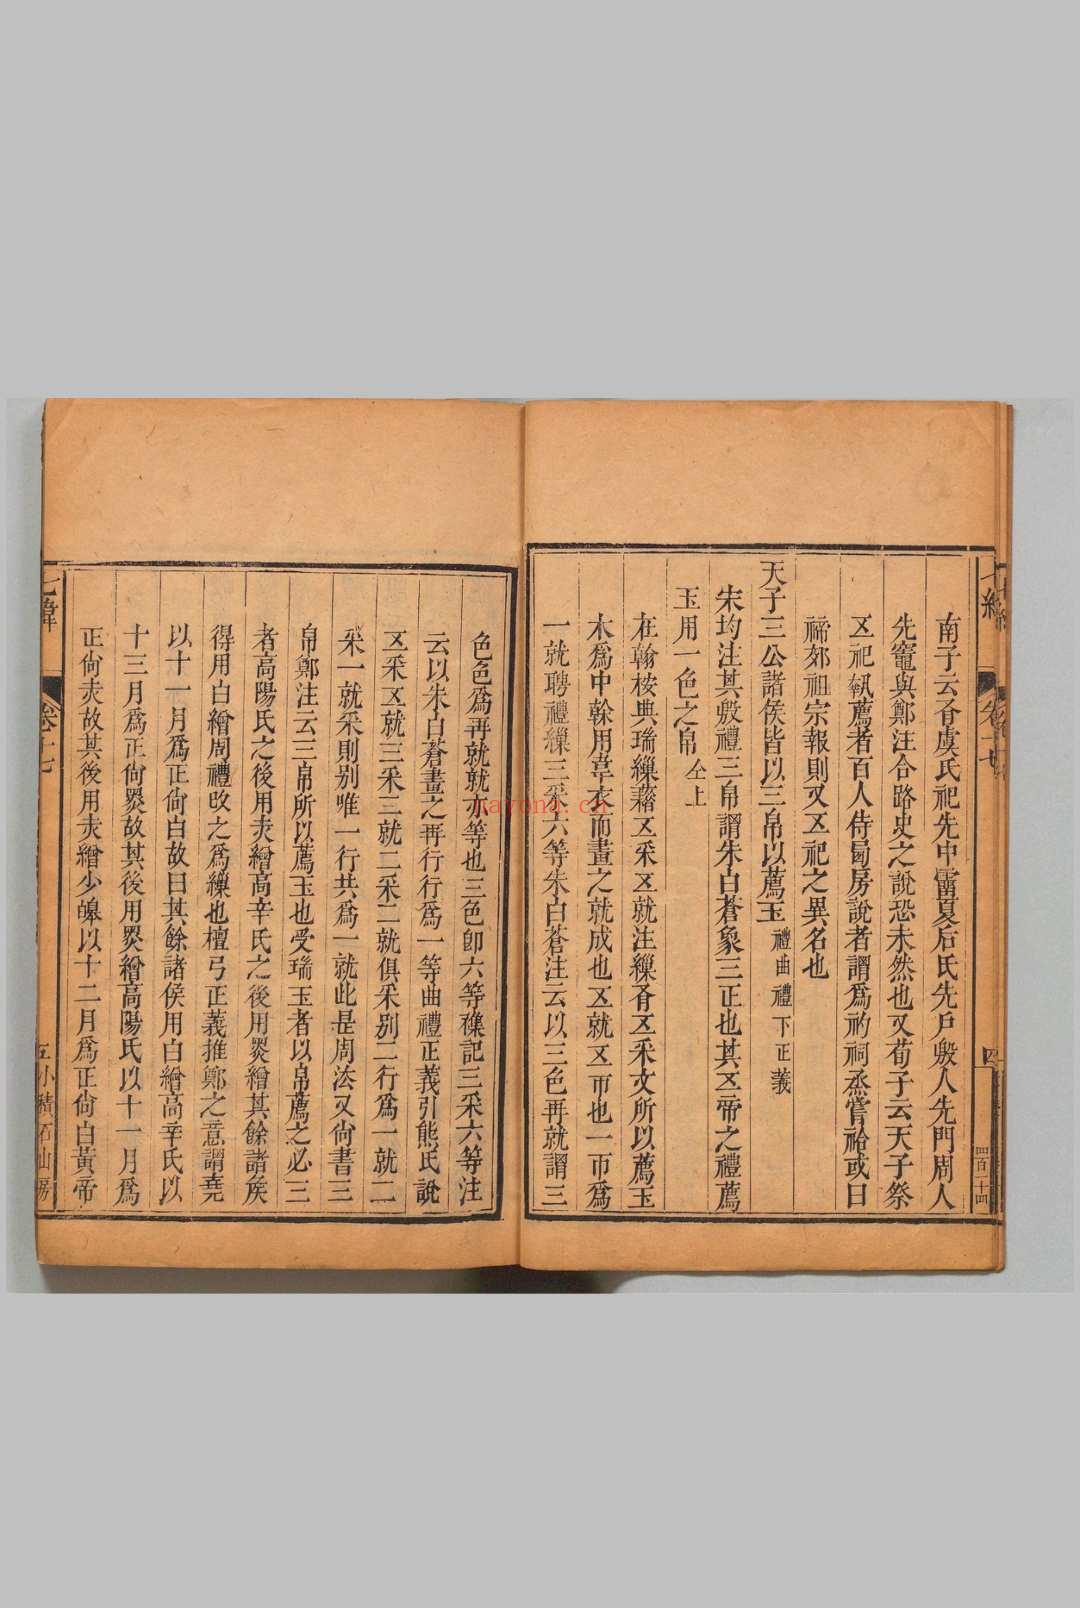 南子云有虞氏祀先中霤夏后氏先戶殷人先門周人
先竈與鄭注合路史之說恐未然也又荀子云天子祭
𠄡祀執薦者百人侍㔷房說者謂爲礿祠烝嘗祫或曰
禘郊祖宗報則又𠄡祀之異名也
天子三公諸侯皆以三帛以薦玉 禮曲禮下正義
宋均注其殷禮三帛謂朱白蒼象三正也其𠄡帝之禮薦
玉用一色之帛 仝上
在翰桉典瑞繅藉𠄡采𠄡就注繅有𠄡采文所以薦玉
木爲中榦用韋衣而畫之就成也𠄡就𠄡帀也一帀爲
一就聘禮繅三采六等朱白蒼注云以三色再就謂三
七緯
卷十七
四
四百二十四
色色爲再就就亦等也三色卽六等襍記三采六等注
云以朱白蒼畫之再行行爲一等曲禮正義引熊氏說
𠄡采𠄡就三采三就二采二就俱采别二行爲一就二
采一就采則别唯一行共爲一就此是周法又尙書三
帛鄭注云三帛所以薦玉也受瑞玉者以帛薦之必三
者高陽氏之後用赤繒高辛氏之後用黑繒其餘諸侯
得用白繒周禮攺之爲繅也檀弓正義推鄭之意謂堯
以十一月爲正尙白故曰其餘諸侯用白繒高辛氏以
十三月爲正尙黑故其後用黑繒高陽氏以十一月爲
正尙赤故其後用赤繒少皥以十二月爲正尙白黃帝
七緯
卷十七
小積石山房
nayona.cn